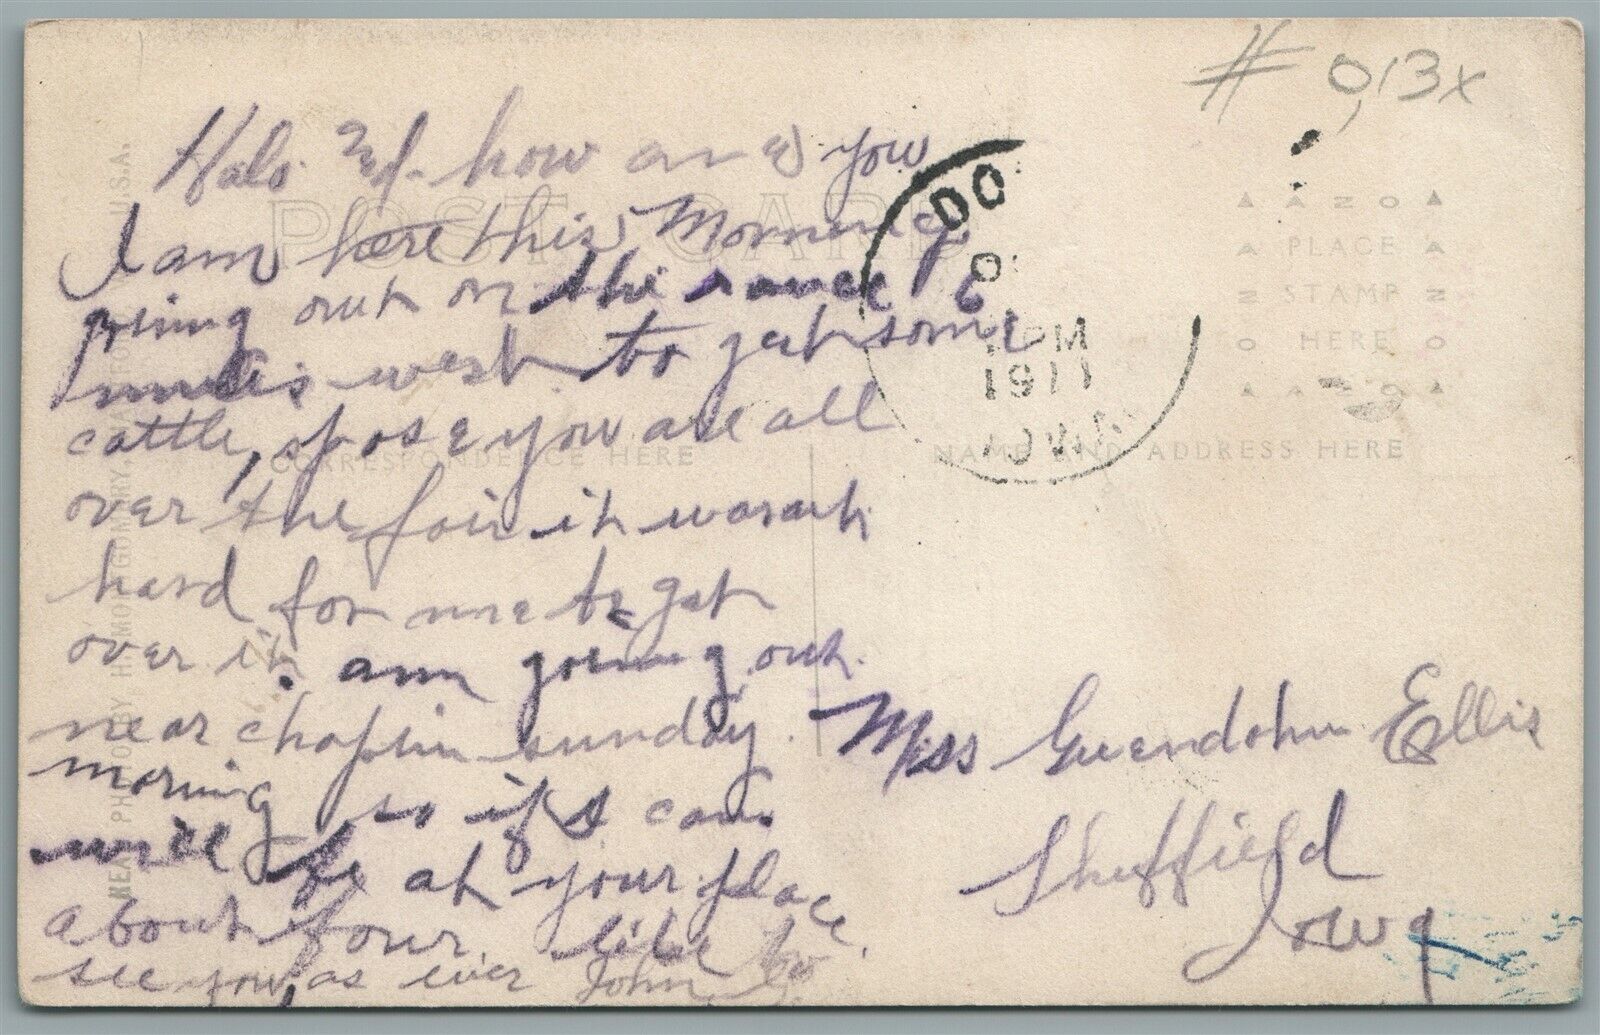 # 0,13x
Halo how are you
I am here this Morning
going out on the 6
miles west to get some
cattle, spose you are all
over the fair it was
hard for me to get
over it. am going out
near chapin sunday
morning so if I can
will be at your place
about four like to
see you, as ever John
POST CARD
CORRESPONDENCE HERE
NAME AND ADDRESS HERE
AZO
PLACE
STAMP
HERE
AZO
DO
PM
1911
IOWA
Miss Gwendolin Ellis
Sheffield
Iowa
U.S.A.